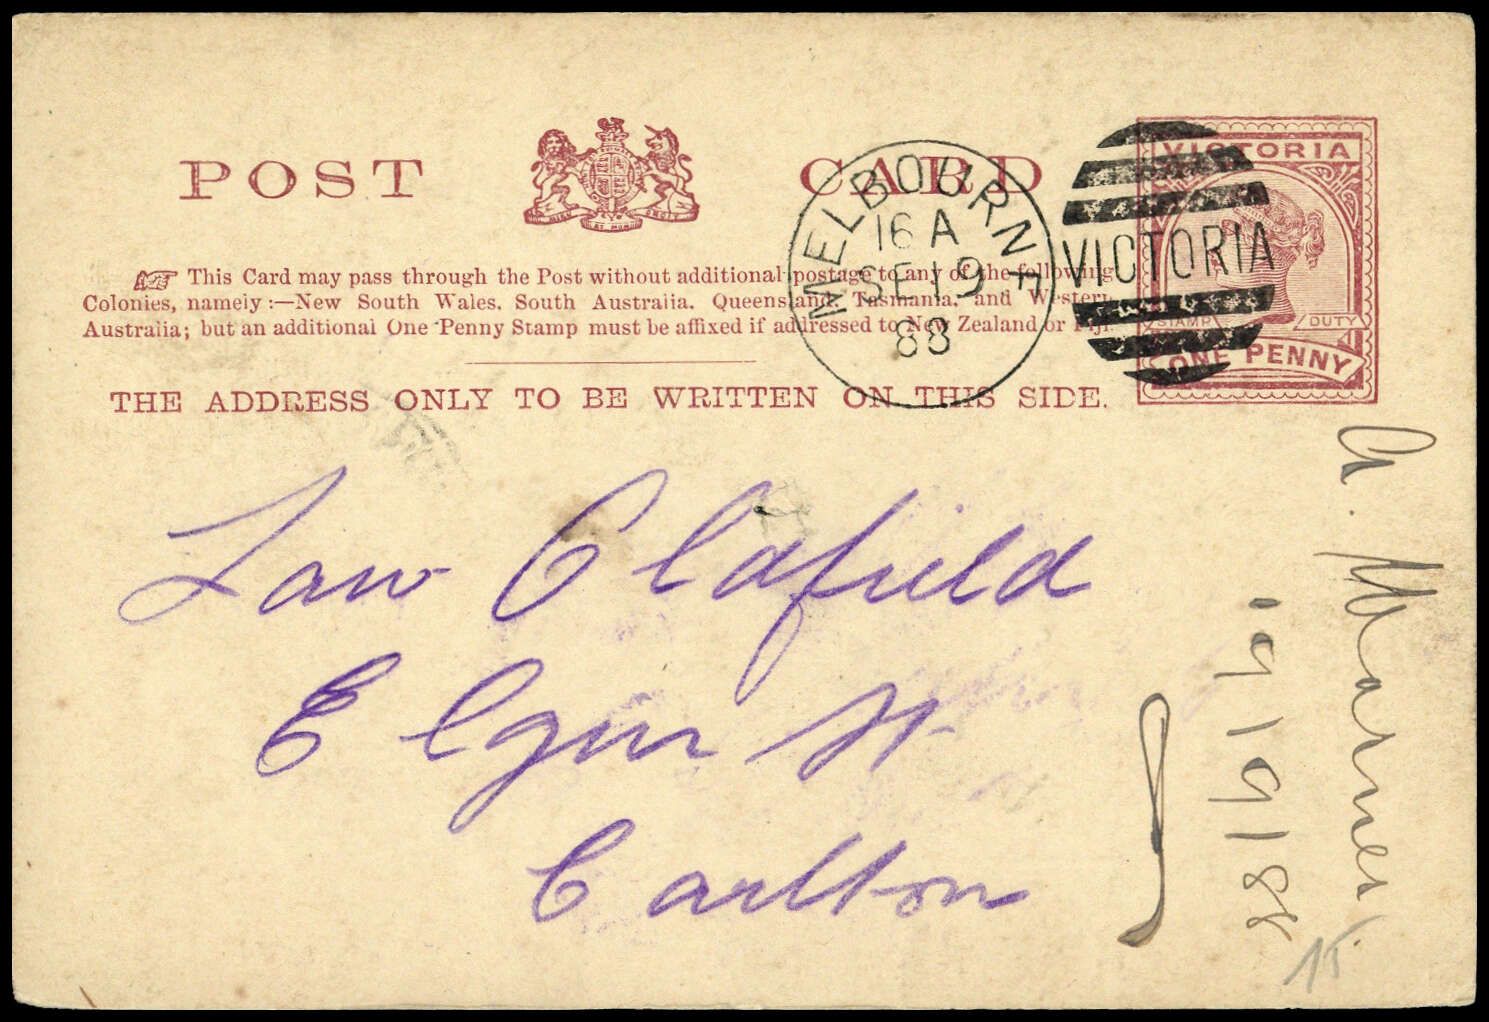 POST CARD
This Card may pass through the Post without additional postage to any of the following
Colonies, namely :—New South Wales, South Australia, Queensland, Tasmania, and Western
Australia; but an additional One Penny Stamp must be affixed if addressed to New Zealand or Fiji.
THE ADDRESS ONLY TO BE WRITTEN ON THIS SIDE.
MELBOURNE
16 A
SE 19
88
VICTORIA
VICTORIA
STAMP DUTY
ONE PENNY
Law Oldfield
Elgin St
Carlton
19/9/88
15